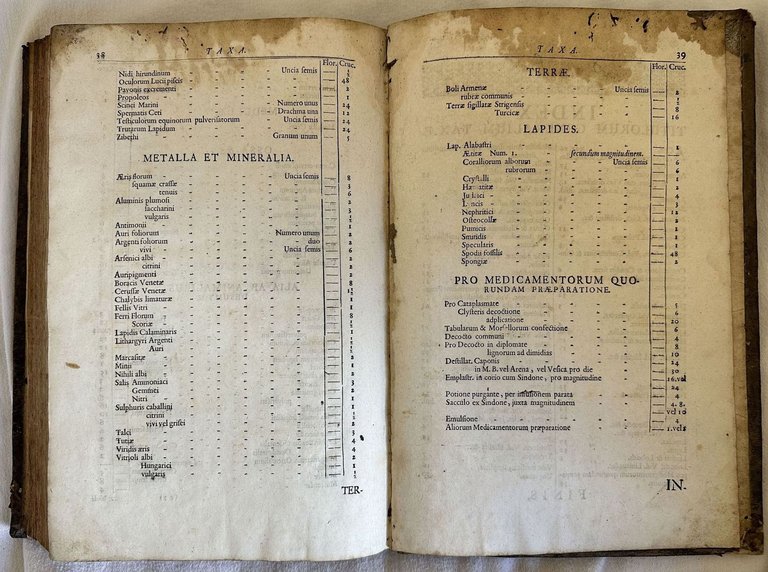 38
TAXA.
Flor. Cruc.
Nidi hirundinum Uncia semis ½
Oculorum Lucii piscis 48
Pavonis excrementi 2
Propoleos 1
Scinci Marini Numero unus 24
Spermatis Ceti Drachma una 12
Testiculorum equinorum pulverisatorum Uncia semis 24
Trutarum Lapidum 24
Zibethi Granum unum 5
METALLA ET MINERALIA.
Æris florum Uncia semis 8
squamæ crassæ 3
tenuis 6
Aluminis plumosi 2
saccharini 3
vulgaris ½
Antimonii 1
Auri foliorum Numero unum 4
Argenti foliorum duo 2
vivi Uncia semis 6
Arsenici albi 2
citrini
Auripigmenti 1
Boracis Venetæ 8
Cerussæ Venetæ 1½
Chalybis limaturæ
Fellis Vitri
Ferri Florum
Scoriæ
Lapidis Calaminaris
Lithargyri Argenti
Auri
Marcasitæ
Minii
Nihili albi
Salis Ammoniaci
Gemmei
Nitri
Sulphuris caballini
citrini
vivi vel grisei 2
Talci 3
Tutiæ 4
Viridis æris 4
Vitrioli albi 2
Hungarici 1
vulgaris ½
TER-
TAXA.
39
Flor. Cruc.
TERRÆ.
Boli Armenæ Uncia semis 2
rubræ communis ½
Terræ sigillatæ Strigensis 8
Turcicæ 16
LAPIDES.
Lap. Alabastri 1
Ætitæ Num. 1. secundum magnitudinem.
Coralliorum alborum Uncia semis 6
rubrorum 6
Crystalli 1
Hæmatitæ 2
Judaici 4
Lyncis 3
Nephritici 12
Osteocollæ 2
Pumicis 1
Smiridis 1
Specularis 1
Spodii fossilis 48
Spongiæ 2
PRO MEDICAMENTORUM QUO-
RUNDAM PRÆPARATIONE.
Pro Cataplasmate 5
Clysteris decoctione 6
adplicatione 20
Tabularum & Morsellorum confectione 6
Decocto communi 4
Pro Decocto in diplomate 8
lignorum ad dimidias 10
Destillat. Caponis 24
in M. B. vel Arena, vel Vesica pro die 30
Emplastr. in corio cum Sindone, pro magnitudine 16. vel
24
Potione purgante, per infusionem parata 4
Sacculo ex Sindone, juxta magnitudinem 4. 8.
vel 10
Emulsione 4
Aliorum Medicamentorum præparatione 1. vel 2
IN-